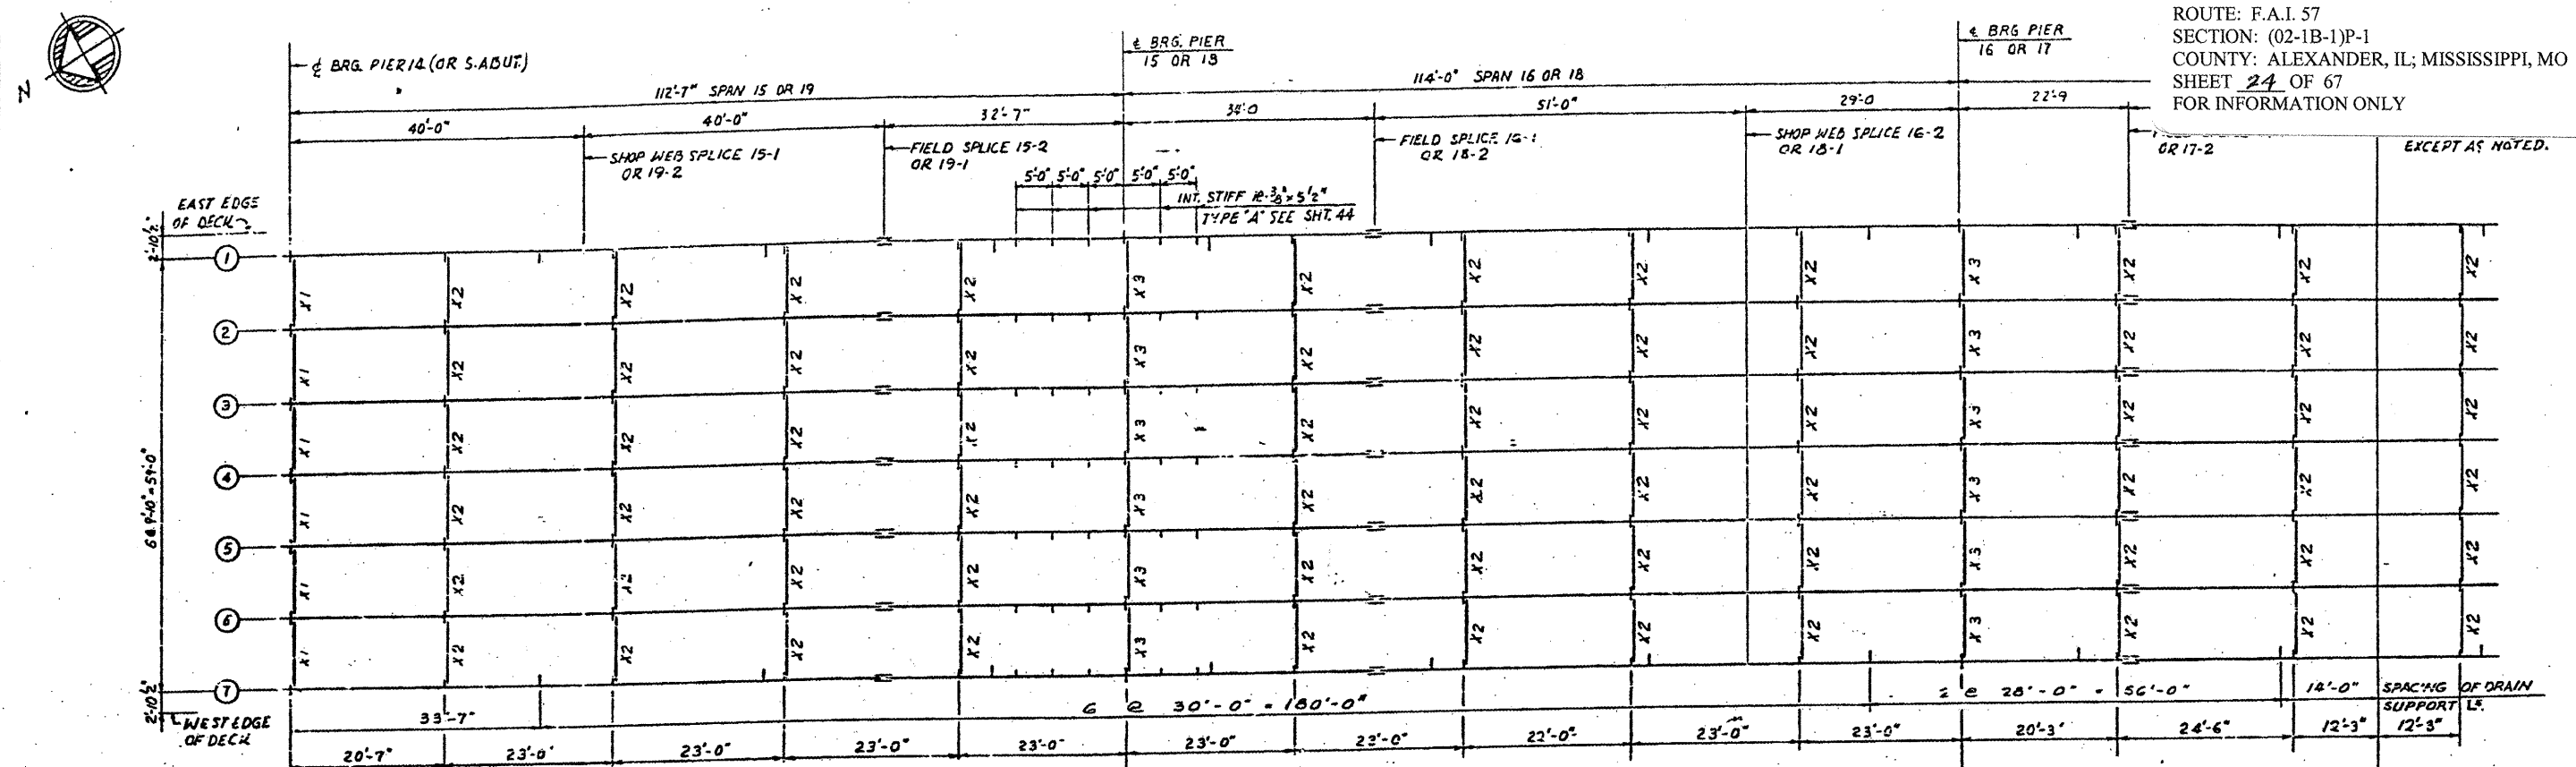 ROUTE: F.A.I. 57
SECTION: (02-1B-1)P-1
COUNTY: ALEXANDER, IL; MISSISSIPPI, MO
SHEET 24 OF 67
FOR INFORMATION ONLY
EXCEPT AS NOTED.
N
¢ BRG. PIER 14 (OR S.ABUT.)
¢ BRG. PIER
15 OR 18
¢ BRG PIER
16 OR 17
112'-7" SPAN 15 OR 19
114'-0" SPAN 16 OR 18
40'-0" 40'-0" 32'-7" 34'-0 51'-0" 29'-0 22'-9
SHOP WEB SPLICE 15-1
OR 19-2
FIELD SPLICE 15-2
OR 19-1
FIELD SPLICE 16-1
OR 18-2
SHOP WEB SPLICE 16-2
OR 18-1
OR 17-2
5'-0" 5'-0" 5'-0" 5'-0" 5'-0"
INT. STIFF ℞-3/8"x5 1/2"
TYPE "A" SEE SHT. 44
EAST EDGE
OF DECK
2'-10 1/2"
1
X1 X2 X2 X2 X2 X3 X2 X2 X2 X2 X3 X2 X2 X2
2
X1 X2 X2 X2 X2 X3 X2 X2 X2 X2 X3 X2 X2 X2
3
X1 X2 X2 X2 X2 X3 X2 X2 X2 X2 X3 X2 X2 X2
4
X1 X2 X2 X2 X2 X3 X2 X2 X2 X2 X3 X2 X2 X2
5
X1 X2 X2 X2 X2 X3 X2 X2 X2 X2 X3 X2 X2 X2
6
X1 X2 X2 X2 X2 X3 X2 X2 X2 X2 X3 X2 X2 X2
7
6@9'-10"=59'-0"
2'-10 1/2"
WEST EDGE
OF DECK
33'-7" 6 @ 30'-0" = 180'-0" 2 @ 28'-0" = 56'-0" 14'-0" SPACING OF DRAIN
SUPPORT Ls.
20'-7" 23'-0" 23'-0" 23'-0" 23'-0" 23'-0" 23'-0" 22'-0" 23'-0" 23'-0" 20'-3" 24'-6" 12'-3" 12'-3"